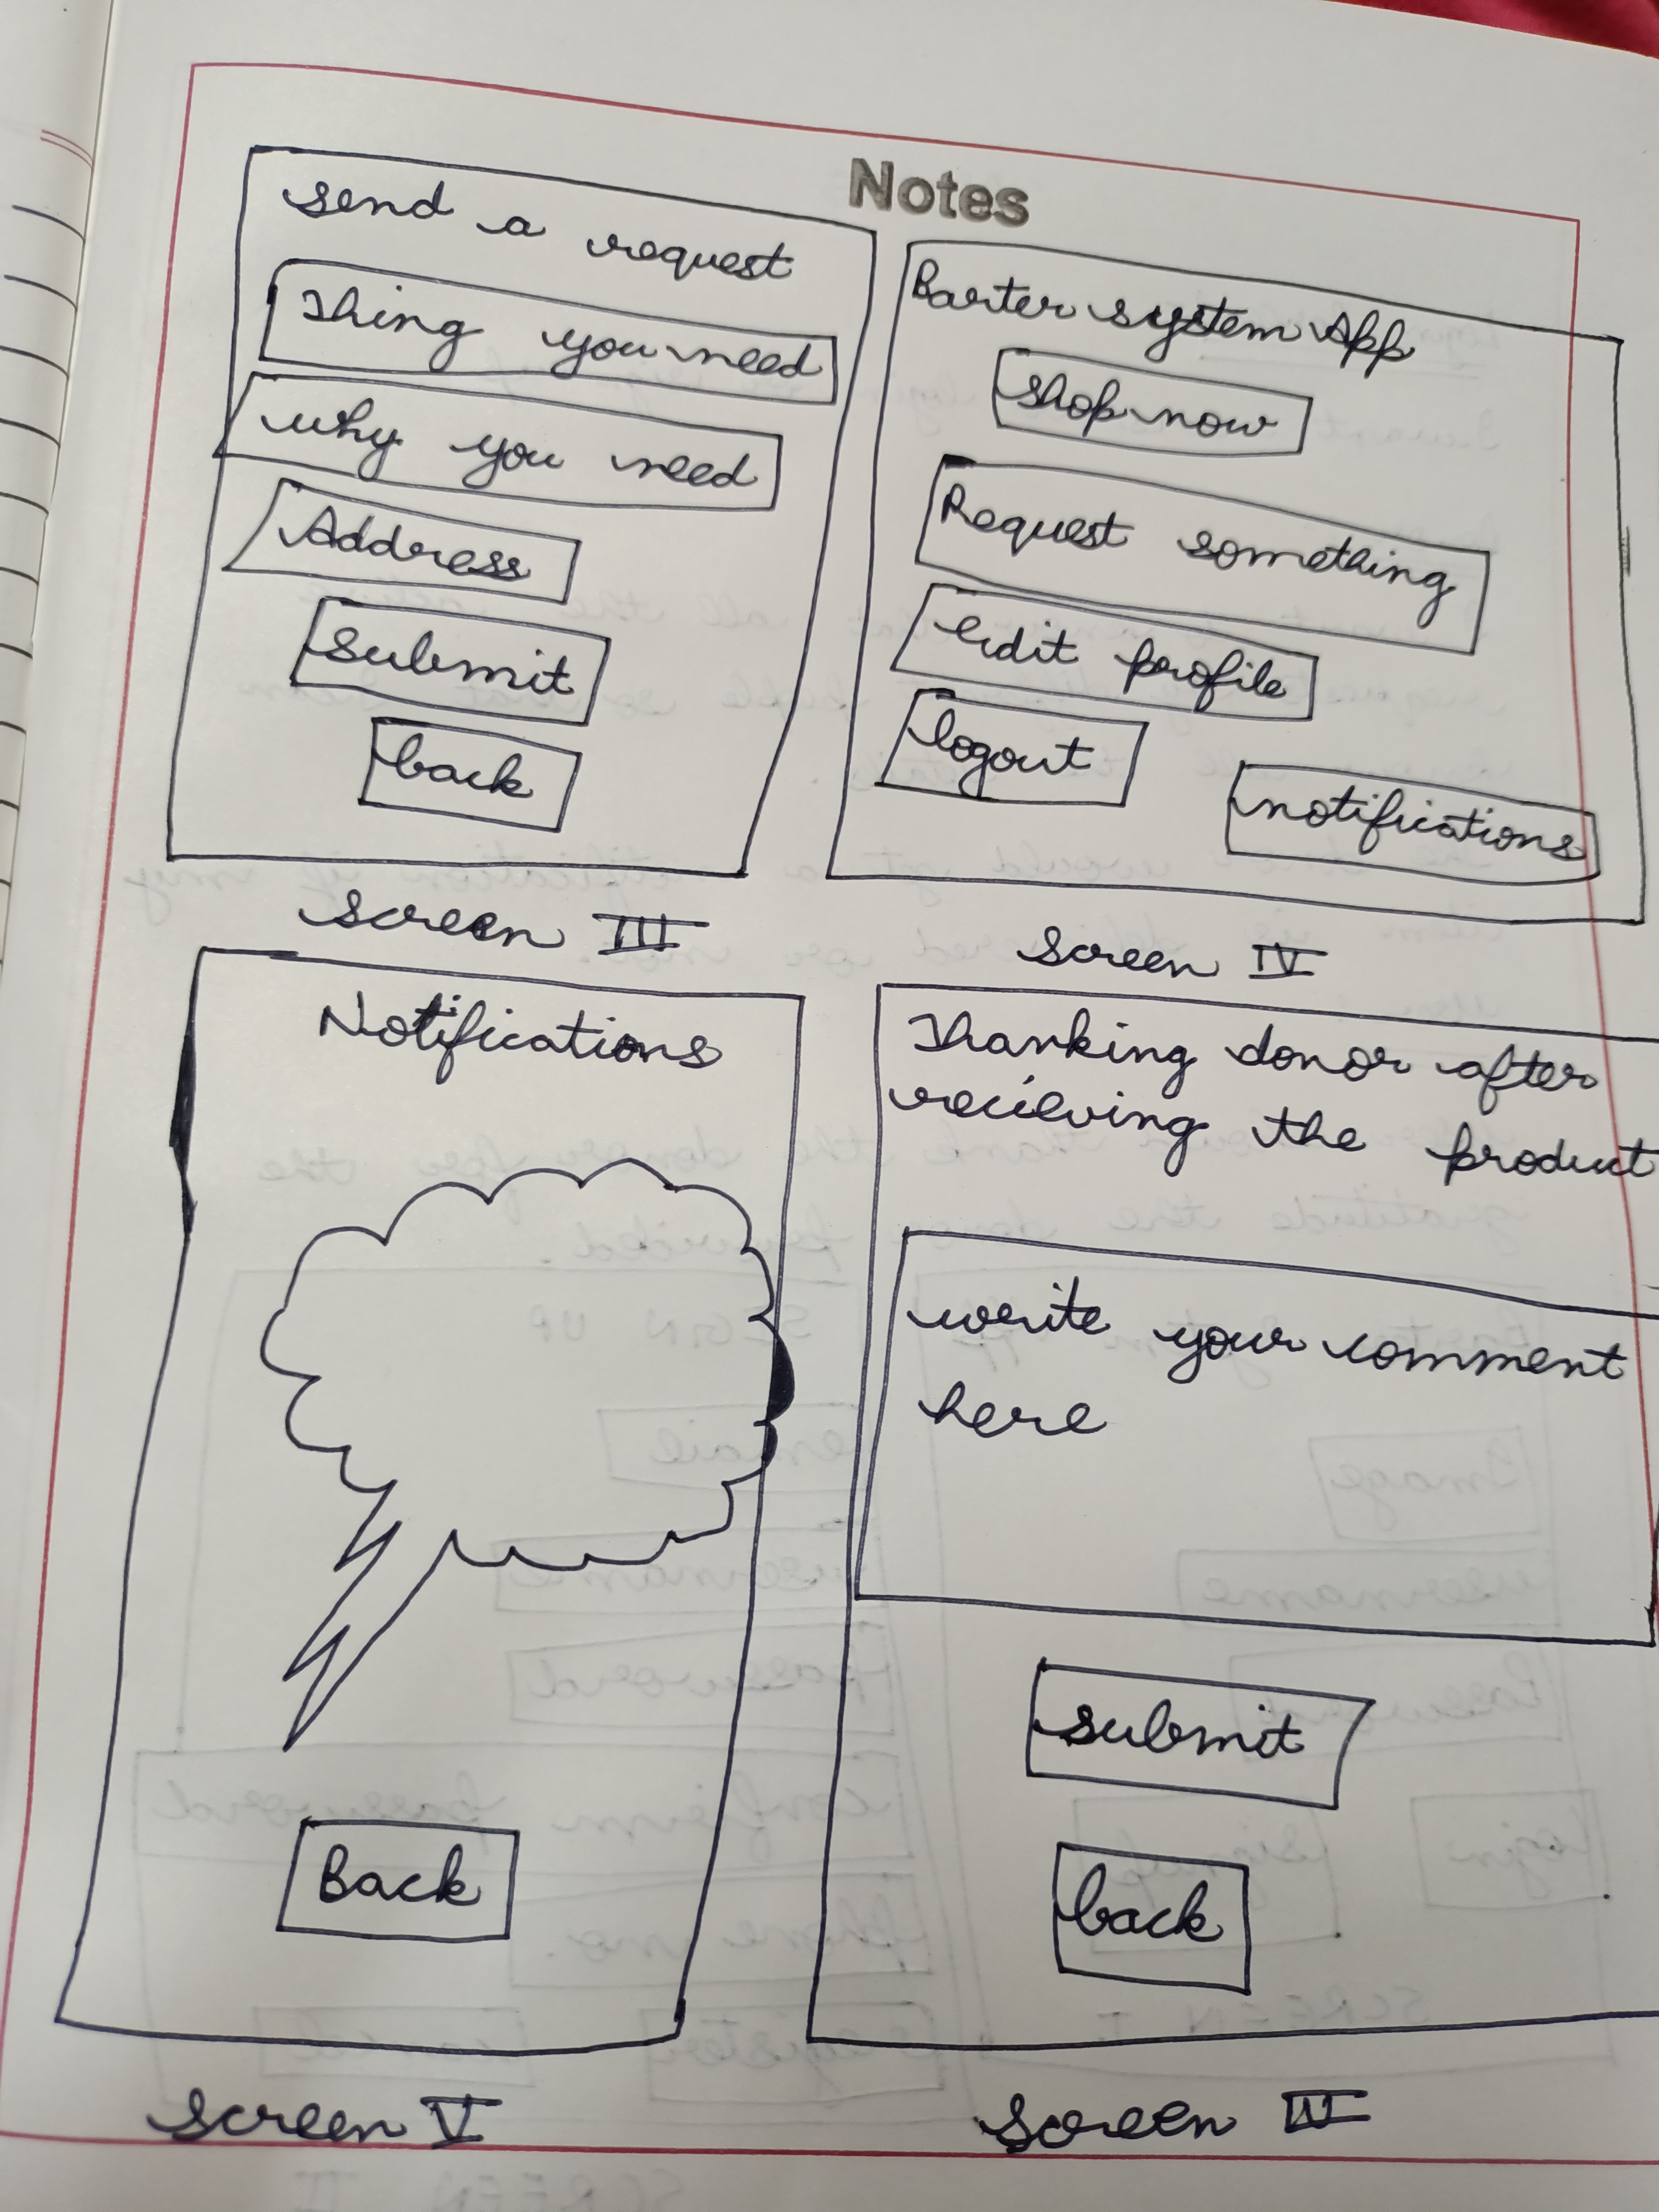 Notes
send a request
Thing you need
why you need
Address
submit
back
screen III
Barter system App
shop now
Request something
edit profile
logout
notifications
screen IV
Notifications
Back
screen V
Thanking donor after
recieving the product
write your comment
here
submit
back
screen